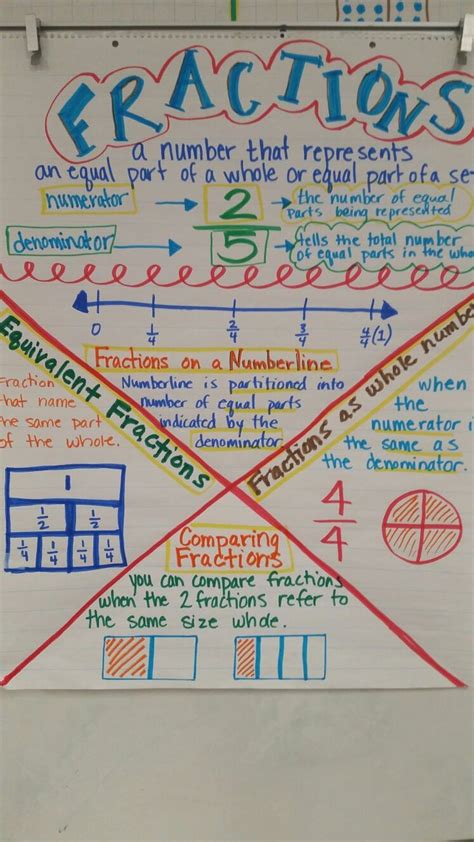 FRACTIONS
a number that represents
an equal part of a whole or equal part of a se
numerator
2
the number of equal
parts being represented
denominator
5
tells the total number
of equal parts in the who
0 1/4 2/4 3/4 4/4 (1)
Fractions on a Numberline
Numberline is partitioned into
number of equal parts
indicated by the
denominator
Equivalent Fractions
Fraction
that name
the same part
of the whole.
1
1/2 1/2
1/4 1/4 1/4 1/4
Fractions as whole number
when
the
numerator i
the same as
the denominator.
4/4
Comparing
Fractions
you can compare fractions
when the 2 fractions refer to
the same size whole.